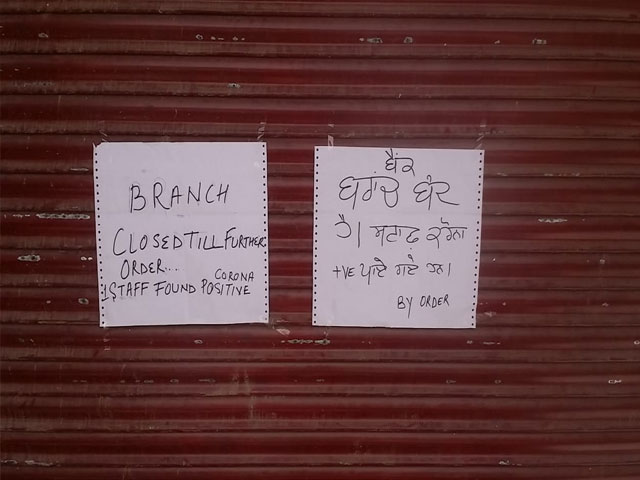 BRANCH
CLOSED TILL FURTHER
ORDER...
CORONA
1 STAFF FOUND POSITIVE
ਬੈਂਕ
ਬਰਾਂਚ ਬੰਦ
ਹੈ। ਸਟਾਫ ਕਰੋਨਾ
+VE ਪਾਏ ਗਏ ਹਨ।
BY ORDER